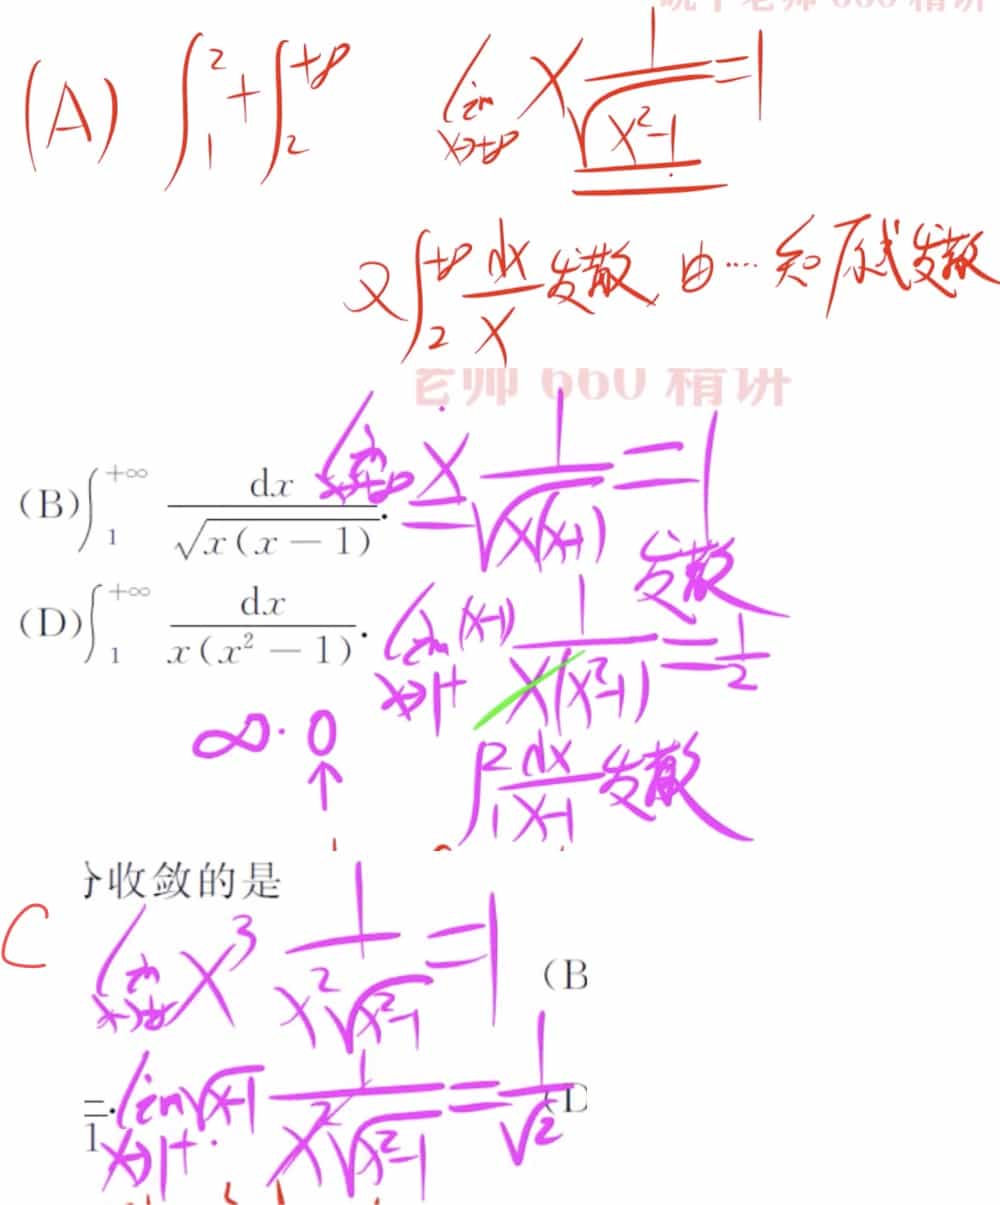 (A) ∫₁² + ∫₂^{+∞} lim_{x→+∞} x 1/√(x²-1) = 1
又∫₂^{+∞} dx/x 发散, 由…… 知原式发散
老师 660 精讲
(B)∫₁^{+∞} dx/√(x(x-1)). lim_{x→+∞} x 1/√(x(x-1)) = 1
发散
(D)∫₁^{+∞} dx/(x(x²-1)). lim_{x→1⁺} (x-1) 1/(x(x²-1)) = 1/2
∞·0
↑
∫₁² dx/(x-1) 发散
收敛的是
C lim_{x→+∞} x³ 1/(x²√(x²-1)) = 1 (B
lim_{x→1⁺} √(x-1) 1/(x²√(x²-1)) = 1/√2 (D
1